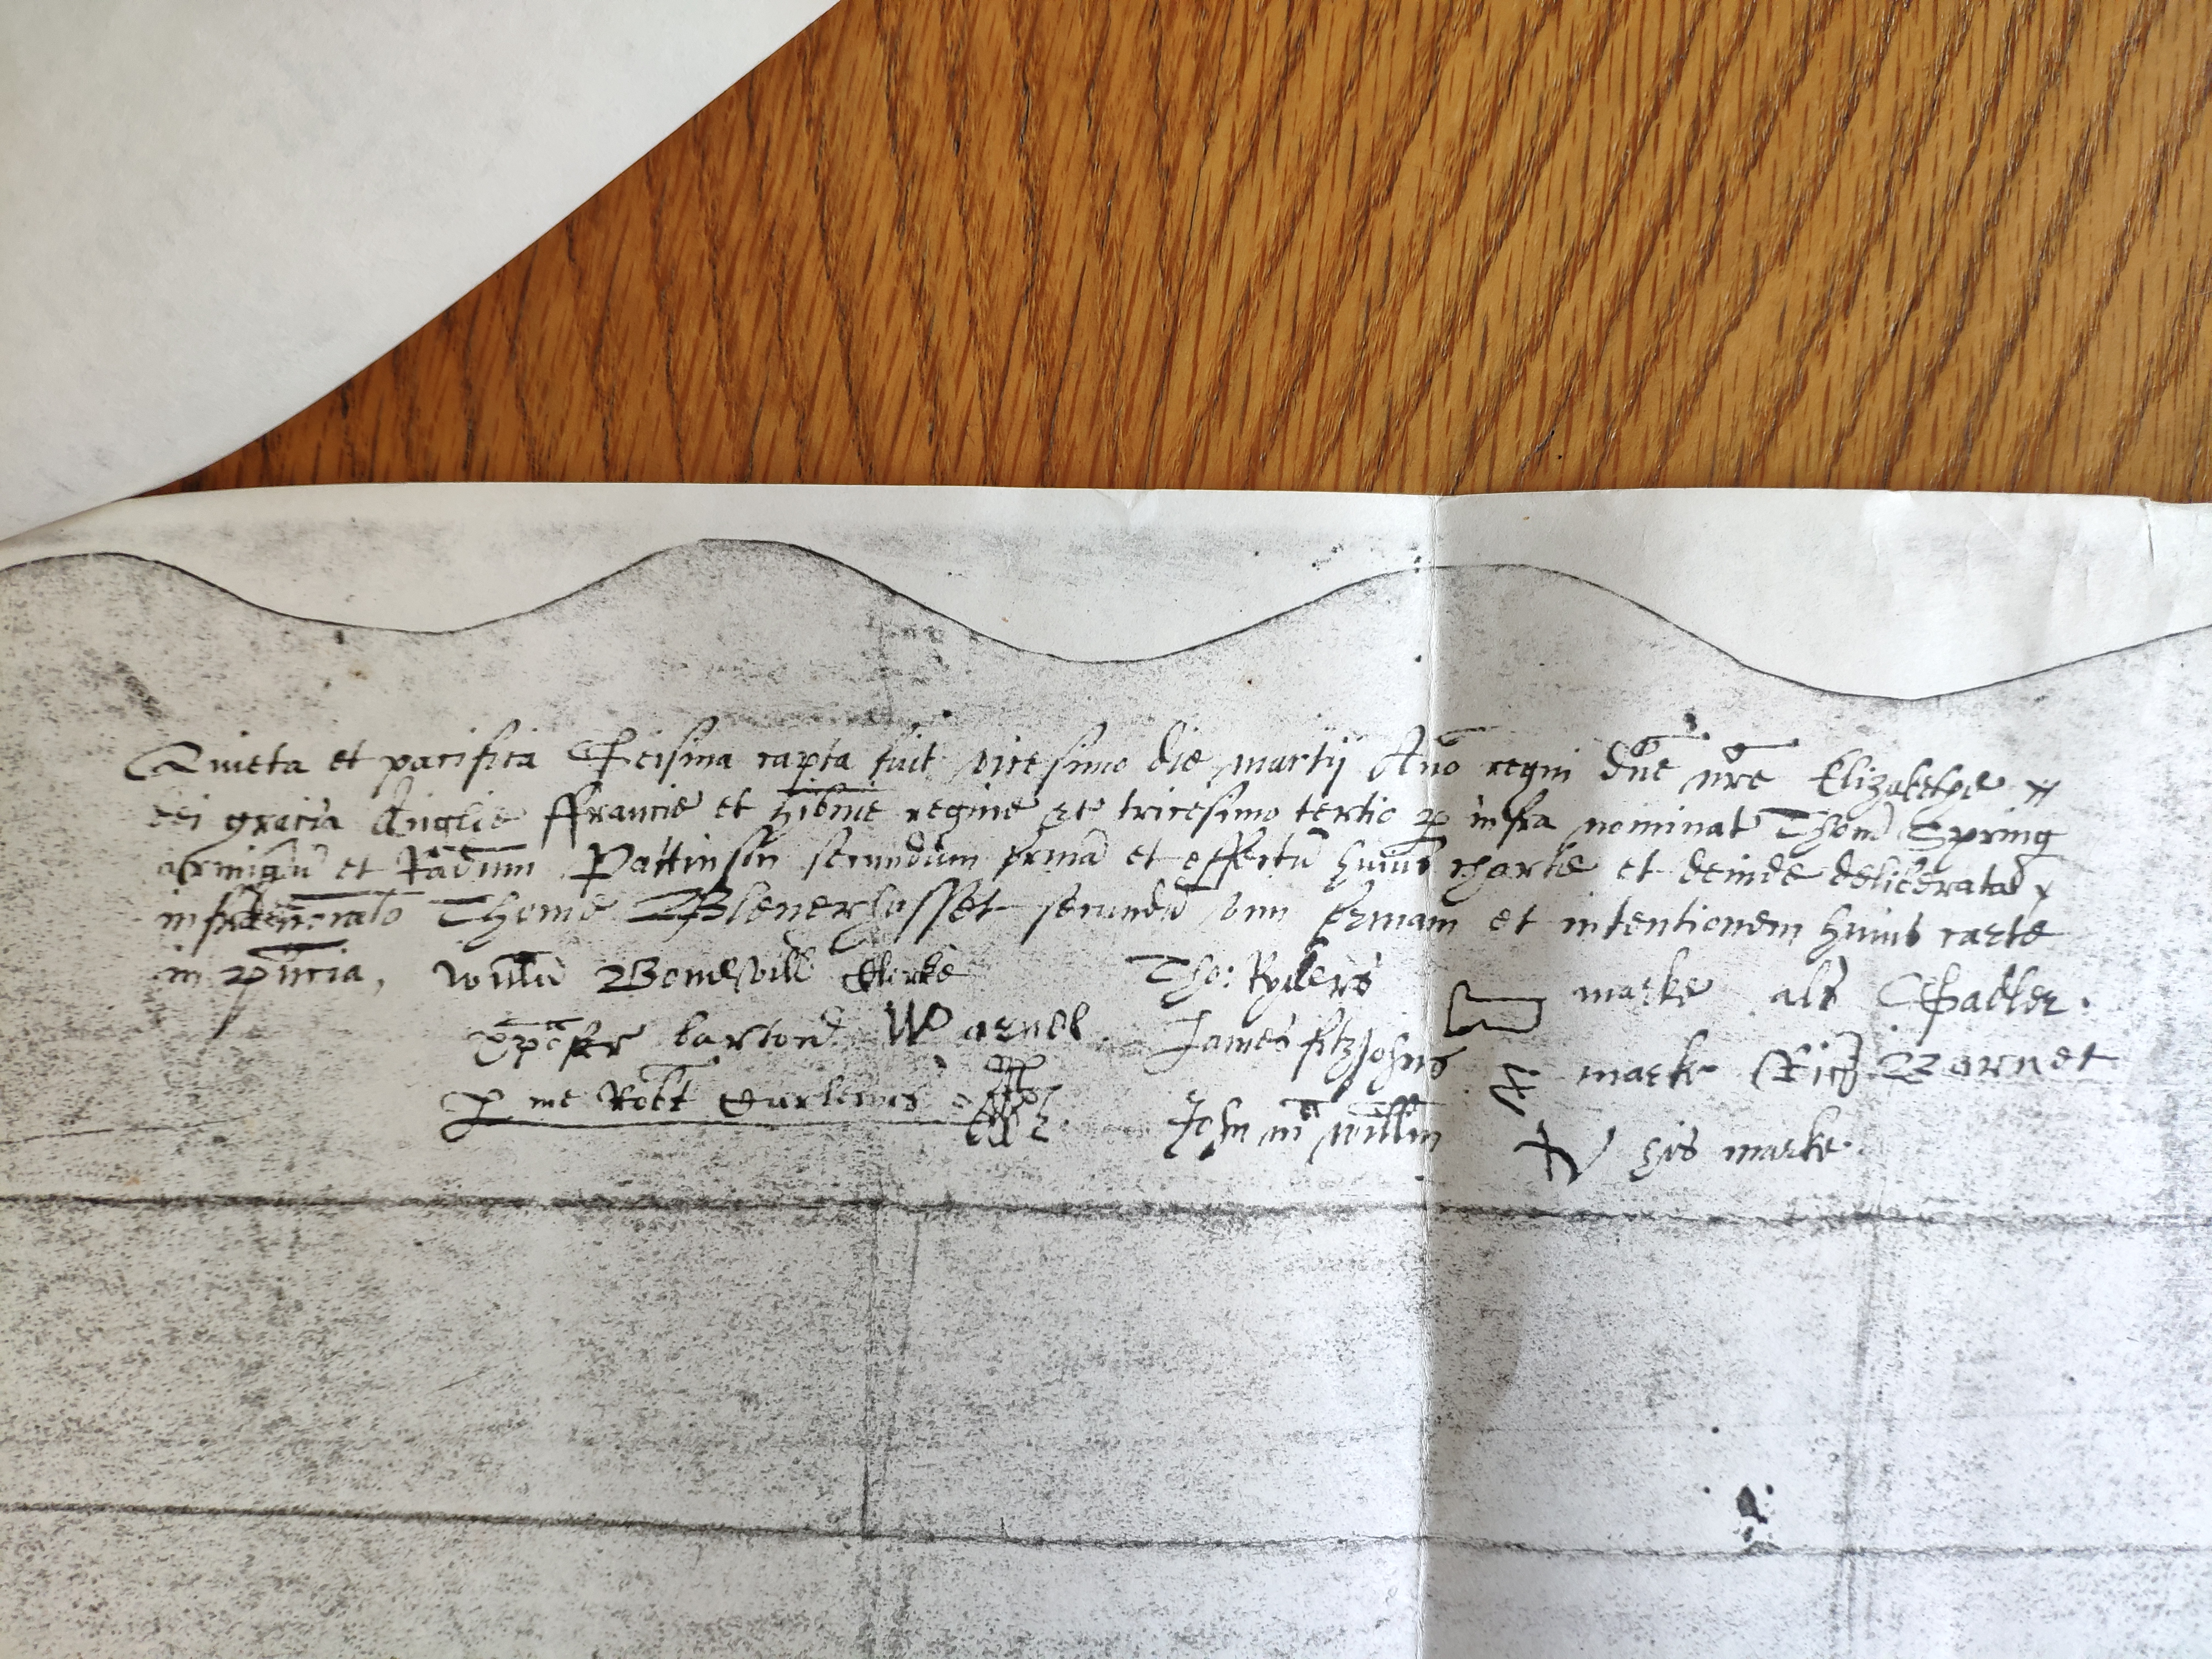 Quieta et pacifica Seisina capta fuit vicesimo die martij Anō regni dne nre Elizabethe
dei gracia Anglie ffrancie et hibnie regine &c tricesimo tertio p infra nominat Thom Spring
armigū et Pattinson secundum formā et effectū huius charte et deinde deliberata
infranominato Thome Blenerhasset secundū vim formam et intentionem huius carte
in
Willm Clerke Tho: Ryders marke als Sadler.
Xpōfer barton W arnol James fitzJohns marke Rich Barnet
P me Robt John mc willm his marke.